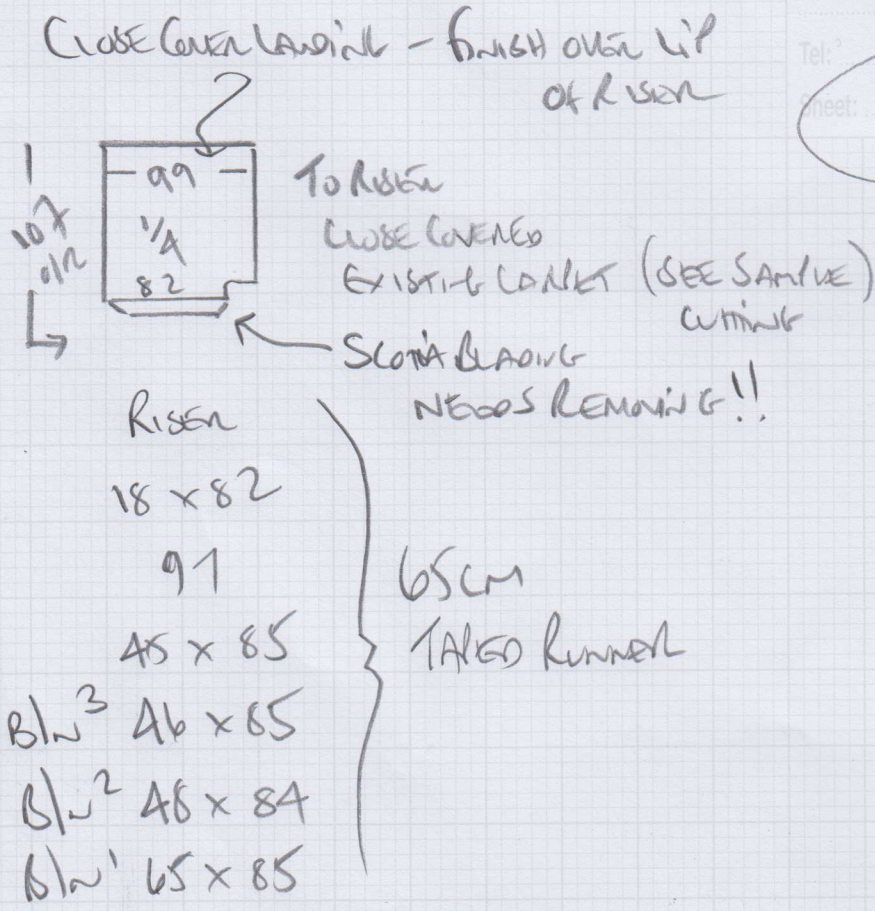 CLOSE COVER LANDING - FINISH OVER LIP
OF RISER
Tel:
Sheet:
99
1/4
82
107
O/R
TO RISER
CLOSE COVERED
EXISTING CARPET (SEE SAMPLE)
CUTTING
SCOTIA BEADING
NEEDS REMOVING!!
RISER
18 x 82
91
45 x 85
B/N 3 46 x 85
B/N 2 48 x 84
B/N 1 65 x 85
65CM
TAPED RUNNER